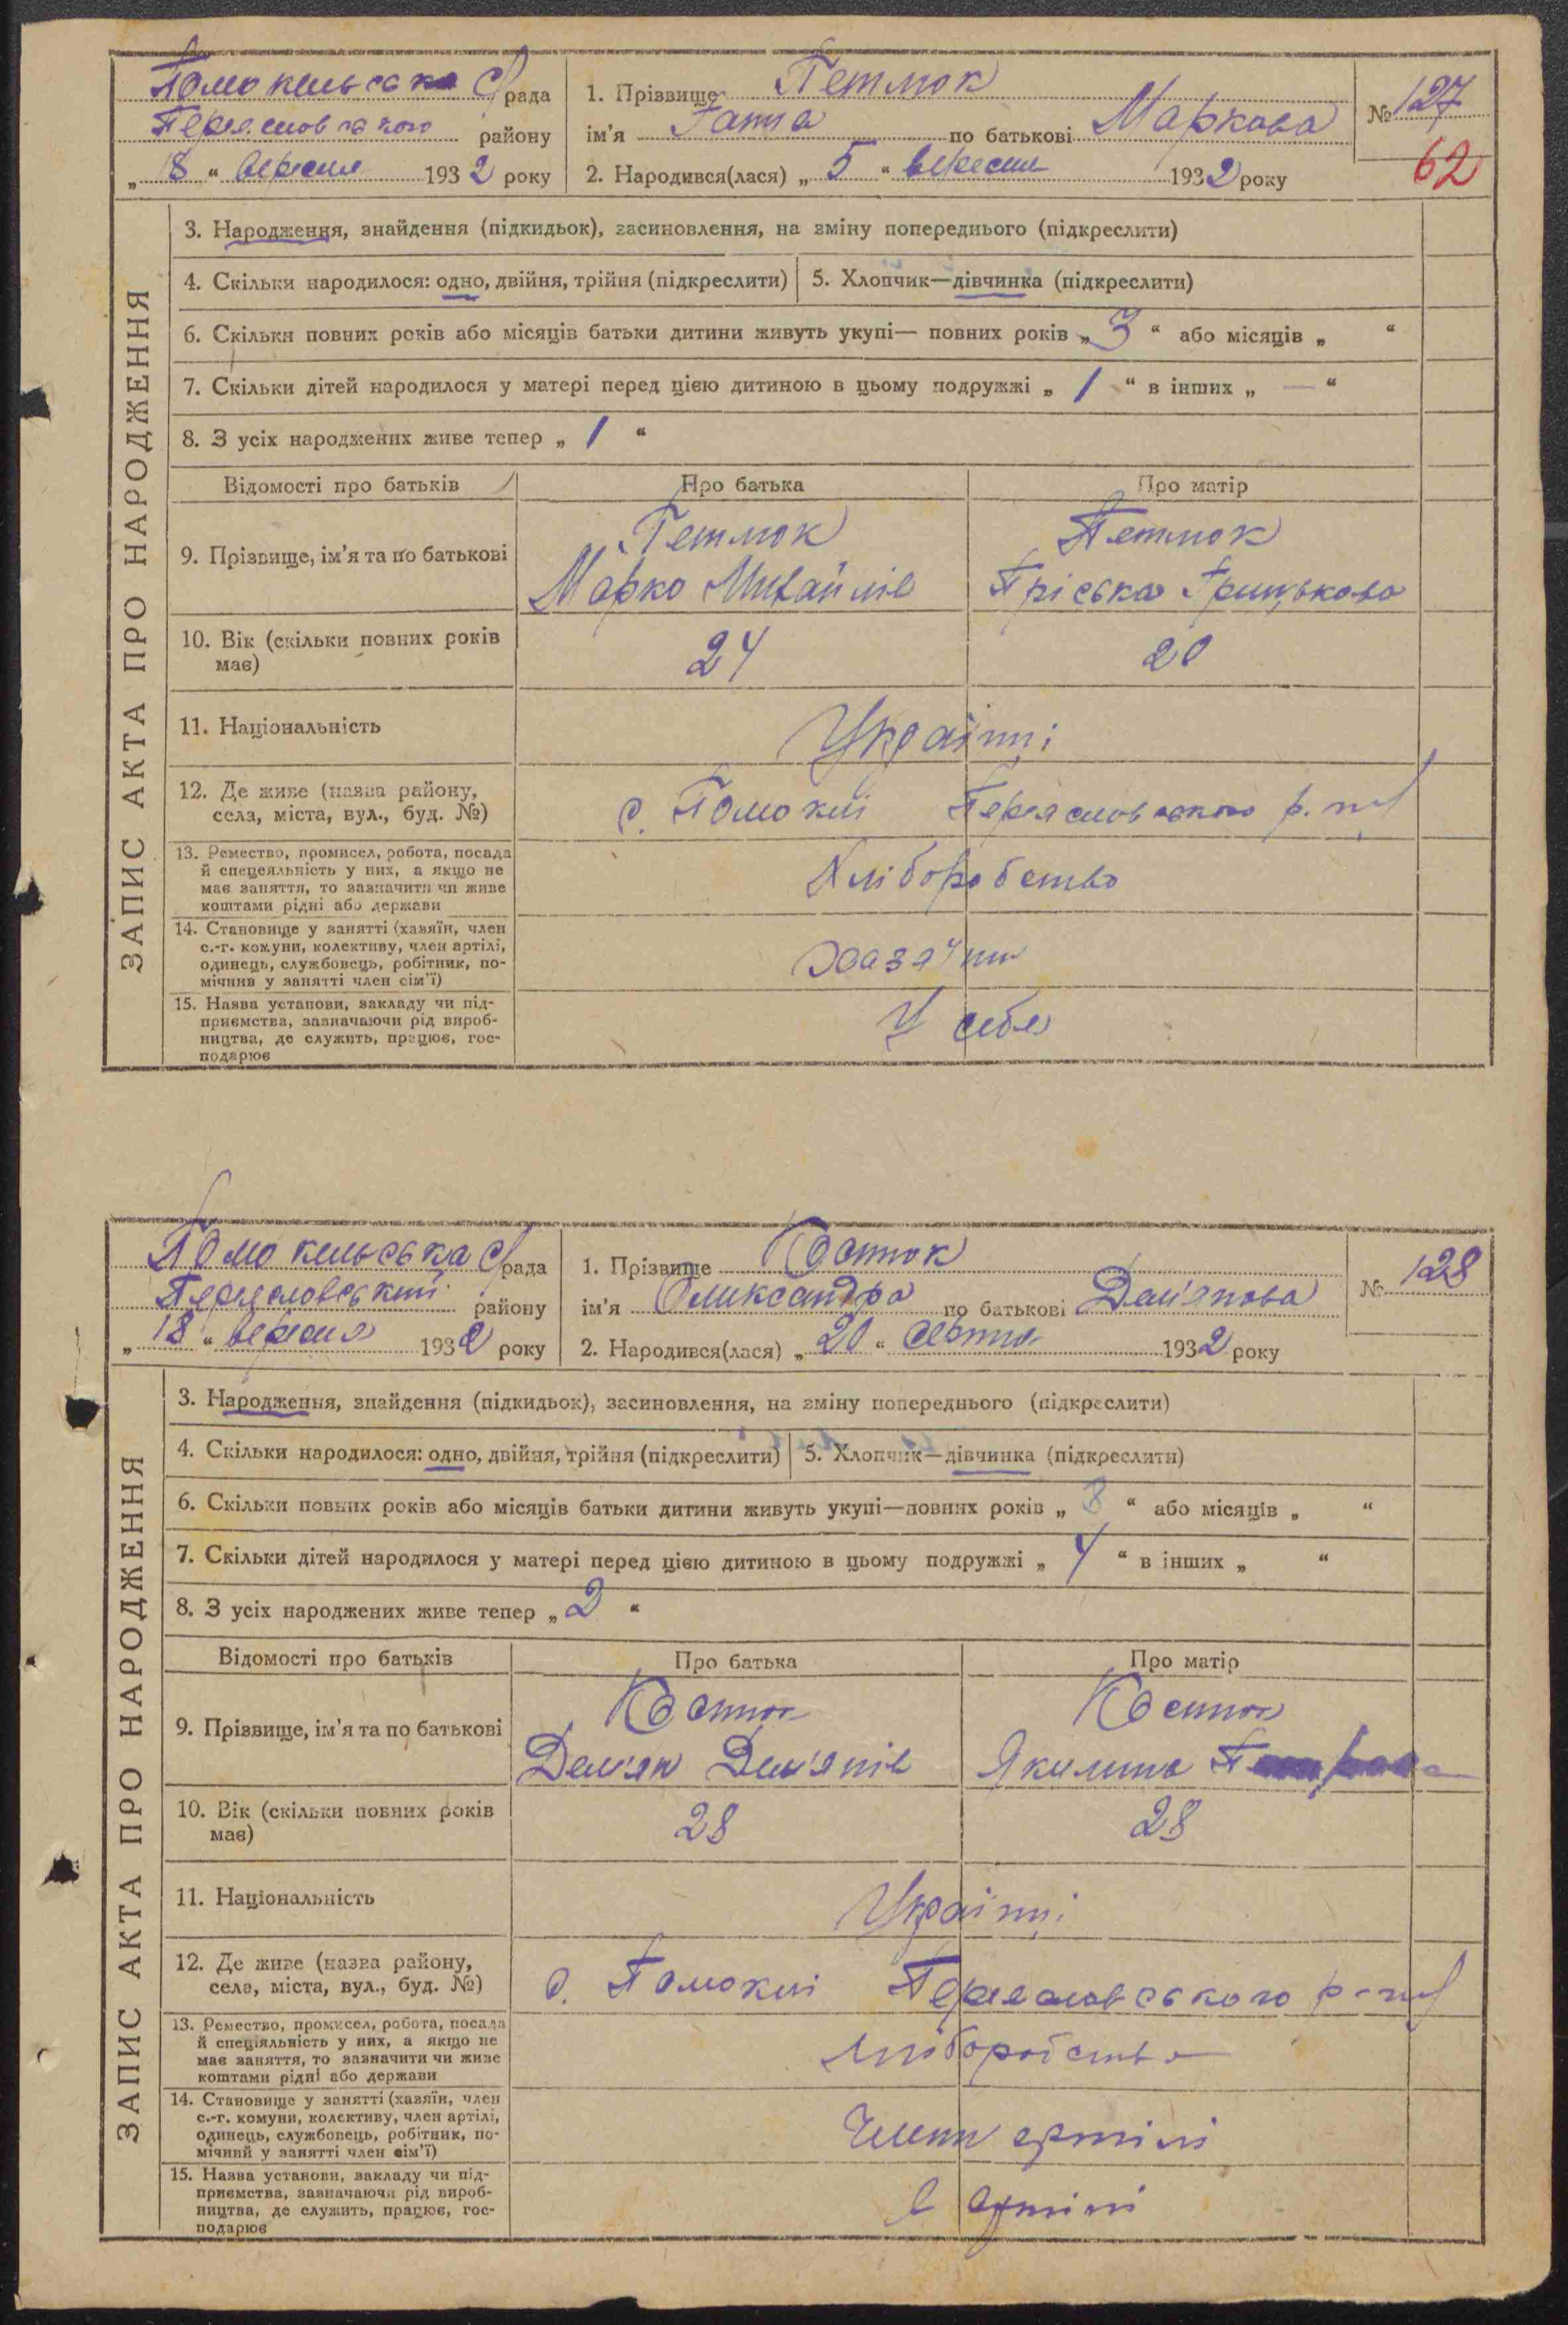 Помокельська С/рада
Переяславського району
„ 18 “ вересня 1932 року
1. Прізвище Гетмок
ім'я Ганна по батькові Маркова
2. Народився(лася) „ 5 “ вересня 1932 року
№ 127
62
ЗАПИС АКТА ПРО НАРОДЖЕННЯ
3. Народження, знайдення (підкидьок), засиновлення, на зміну попереднього (підкреслити)
4. Скільки народилося: одно, двійня, трійня (підкреслити) 5. Хлопчик—дівчинка (підкреслити)
6. Скільки повних років або місяців батьки дитини живуть укупі— повних років „ 3 “ або місяців „ “
7. Скільки дітей народилося у матері перед цією дитиною в цьому подружжі „ 1 “ в інших „ — “
8. З усіх народжених живе тепер „ 1 “
Відомості про батьків Про батька Про матір
9. Прізвище, ім'я та по батькові
Гетмок
Марко Михайлів
Гетмок
Пріська Грицькова
10. Вік (скільки повних років
має)
24 20
11. Національність
Українці
12. Де живе (назва району,
села, міста, вул., буд. №)
с. Помоклі Переяславського р.
13. Ремество, промисел, робота, посада
й спецеяльність у них, а якщо не
має заняття, то зазначити чи живе
коштами рідні або держави
Хліборобство
14. Становище у занятті (хазяїн, член
с.-г. комуни, колективу, член артілі,
одинець, службовець, робітник, по-
мічнив у занятті член сім'ї)
15. Назва установи, закладу чи під-
приємства, зазначаючи рід вироб-
ництва, де служить, працює, гос-
подарює
У себе
Помокельська С/рада
Переяславський району
„ 18 “ вересня 1932 року
1. Прізвище Костюк
ім'я Олександра по батькові Дем'янова
2. Народився(лася) „ 20 “ серпня 1932 року
№ 128
ЗАПИС АКТА ПРО НАРОДЖЕННЯ
3. Народження, знайдення (підкидьок), засиновлення, на зміну попереднього (підкреслити)
4. Скільки народилося: одно, двійня, трійня (підкреслити) 5. Хлопчик—дівчинка (підкреслити)
6. Скільки повних років або місяців батьки дитини живуть укупі—повних років „ 8 “ або місяців „ “
7. Скільки дітей народилося у матері перед цією дитиною в цьому подружжі „ 4 “ в інших „ “
8. З усіх народжених живе тепер „ 2 “
Відомості про батьків Про батька Про матір
9. Прізвище, ім'я та по батькові
Костюк
Дем'ян Дем'янів
Костюк
Якилина
10. Вік (скільки повних років
має)
28 28
11. Національність
Українці
12. Де живе (назва району,
села, міста, вул., буд. №)
с. Помоклі Переяславського р-ну
13. Ремество, промисел, робота, посада
й спеціяльність у них, а якщо не
має заняття, то зазначити чи живе
коштами рідні або держави
Хліборобство
14. Становище у занятті (хазяїн, член
с.-г. комуни, колективу, член артілі,
одинець, службовець, робітник, по-
мічний у занятті член сім'ї)
Члени артілі
15. Назва установи, закладу чи під-
приємства, зазначаючи рід вироб-
ництва, де служить, працює, гос-
подарює
в артілі